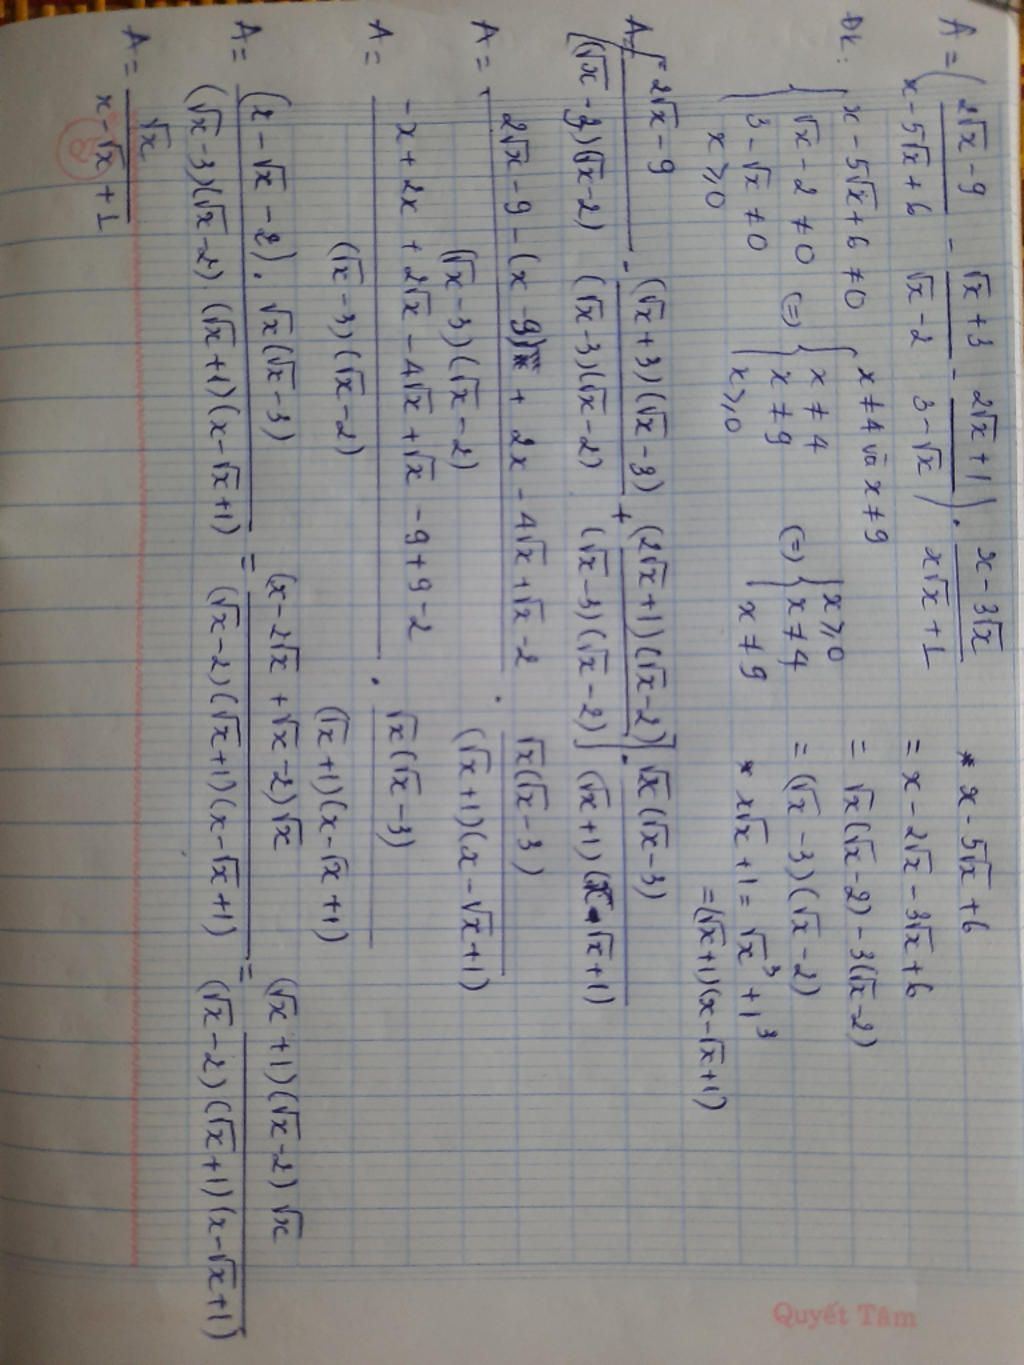 A = ( (2√x - 9)/(x - 5√x + 6) - (√x + 3)/(√x - 2) - (2√x + 1)/(3 - √x) ) . (x - 3√x)/(x√x + 1)
* x - 5√x + 6
= x - 2√x - 3√x + 6
= √x(√x - 2) - 3(√x - 2)
= (√x - 3)(√x - 2)
* x√x + 1 = √x³ + 1³
= (√x + 1)(x - √x + 1)
ĐK: { x - 5√x + 6 ≠ 0
√x - 2 ≠ 0
3 - √x ≠ 0
x ≥ 0
(=) { x ≠ 4 và x ≠ 9
x ≠ 4
x ≠ 9
x ≥ 0
(=) { x ≥ 0
x ≠ 4
x ≠ 9
A = [ (2√x - 9)/((√x - 3)(√x - 2)) - ((√x + 3)(√x - 3))/((√x - 3)(√x - 2)) + ((2√x + 1)(√x - 2))/((√x - 3)(√x - 2)) ] . (√x(√x - 3))/((√x + 1)(x - √x + 1))
A = (2√x - 9 - (x - 9) + 2x - 4√x + √x - 2)/((√x - 3)(√x - 2)) . (√x(√x - 3))/((√x + 1)(x - √x + 1))
A = (-x + 2x + 2√x - 4√x + √x - 9 + 9 - 2)/((√x - 3)(√x - 2)) . (√x(√x - 3))/((√x + 1)(x - √x + 1))
A = ((x - √x - 2) . √x(√x - 3))/((√x - 3)(√x - 2) . (√x + 1)(x - √x + 1)) = ((x - 2√x + √x - 2)√x)/((√x - 2)(√x + 1)(x - √x + 1)) = ((√x + 1)(√x - 2)√x)/((√x - 2)(√x + 1)(x - √x + 1))
A = √x/(x - √x + 1)
Quyết Tâm